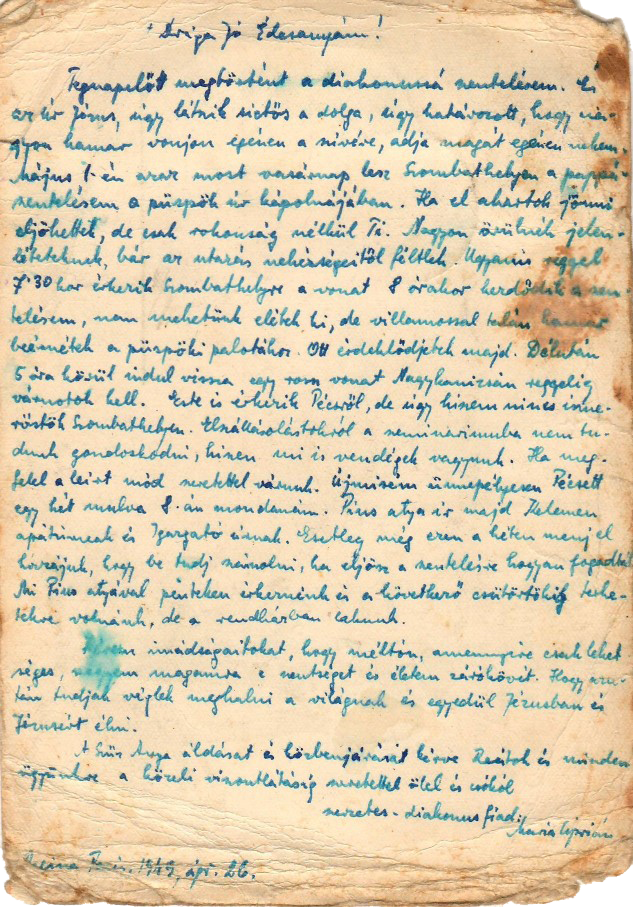 Drága Jó Édesanyám!
Tegnapelőt megtörtént a diakonussá szentelésem. És
az Úr Jézus, úgy látszik siettős a dolga, úgy határozott, hogy na-
gyon hamar vonjon egészen a szívére, adja magát egészen nekem.
Május 1-én azaz most vasárnap lesz Szombathelyen a pappá-
szentelésem a püspök úr kápolnájában. Ha el akartok jönni
eljöhettek, de csak rokonság nélkül Ti. Nagyon örülnék jelen-
léteteknek, bár az utazás nehézségeitől féltlek. Ugyanis reggel
7'30 kor érkezik Szombathelyre a vonat 8 órakor kezdődik a szen-
telésem, nem mehetünk elétek ki, de villamossal talán hamar
beérnétek a püspöki palotához. Ott érdeklődjetek majd. Délután
5 óra körül indul vissza egy rossz vonat Nagykanizsán reggelig
várnotok kell. Este is érkezik Pécsről, de úgy hiszem nincs isme-
rőstök Szombathelyen. Elszállásolástokról a szemináriumba nem tu-
dunk gondoskodni, hiszen mi is vendégek vagyunk. Ha meg-
felel a leírt mód szeretettel várunk. Újmisém ünnepélyesen Pécsett
egy hét mulva 8.-án mondanám. Pius atya ír majd Kelemen
apátúrnak és Igazgató úrnak. Esetleg még ezen a héten menj el
hozzájuk, hogy be tudj számolni, ha eljösz a szentelésre hogyan fogadták
Mi Pius atyával pénteken érkeznénk és a következő csütörtökig terhe-
tekre volnánk, de a rendházban laknunk.
Kérem imádságaitokat, hogy méltón, amennyire csak lehet
séges, vegyem magamra e szentséget és életem zárókövét. Hogy azu-
tán tudjak végleg meghalni a világnak és egyedül Jézusban és
Jézusért élni.
A Szűz Anya áldását és közbenjárását kérve Reátok és minden
ügyünkre a közeli viszontlátásig szeretettel ölel és csókol
szerzetes-diakonus fiad:
Mária Ciprián
1949, ápr. 26.